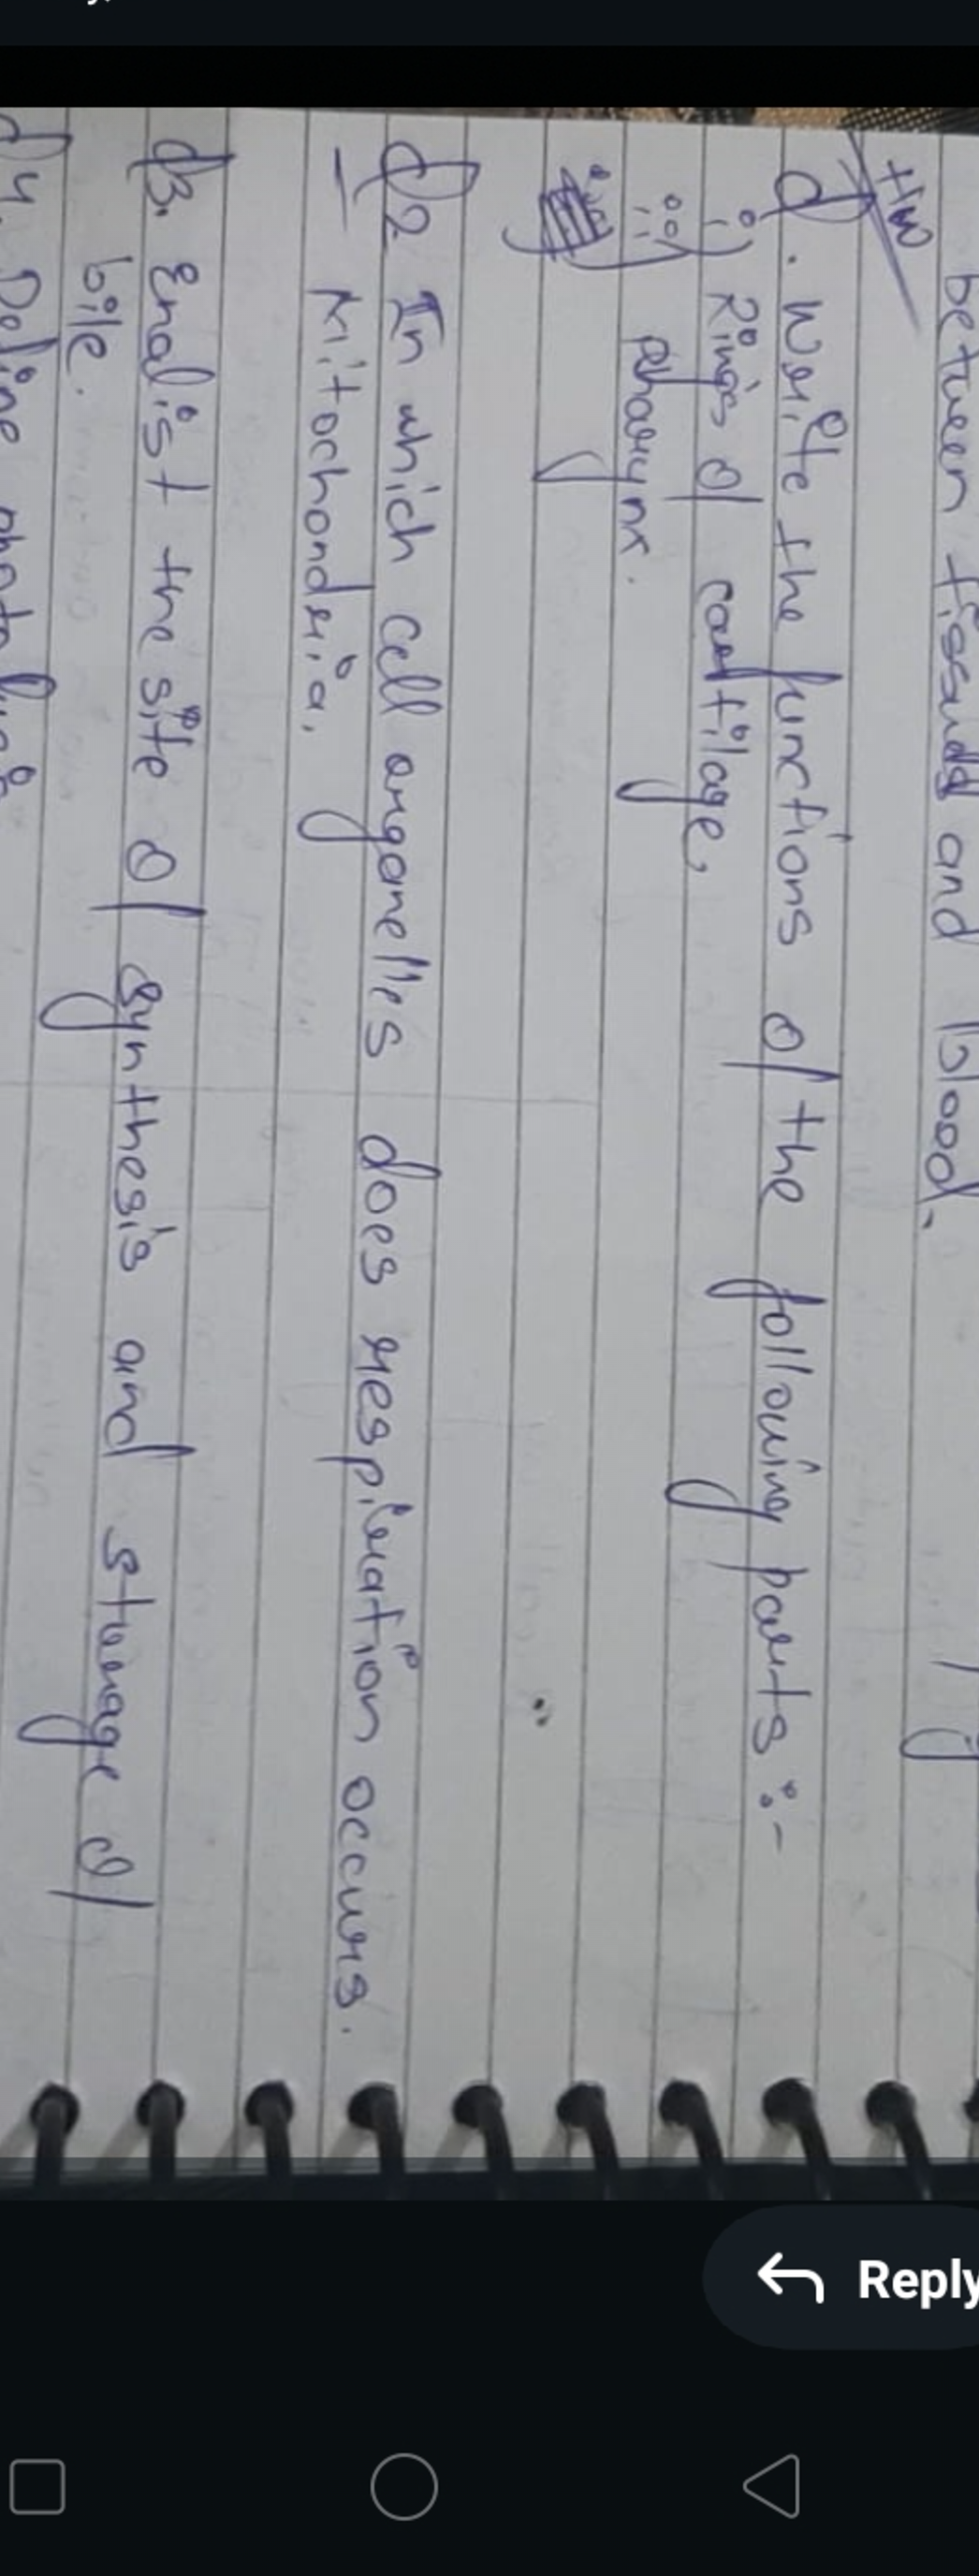 between tissues and blood.
HW
Q. Write the functions of the following parts :-
i) Rings of cartilage,
ii) Pharynx.
Q2 In which cell organelles does respiration occurs.
— Mitochondria,
Q3. Enlist the site of synthesis and storage of
bile.
Q4. Define
Reply